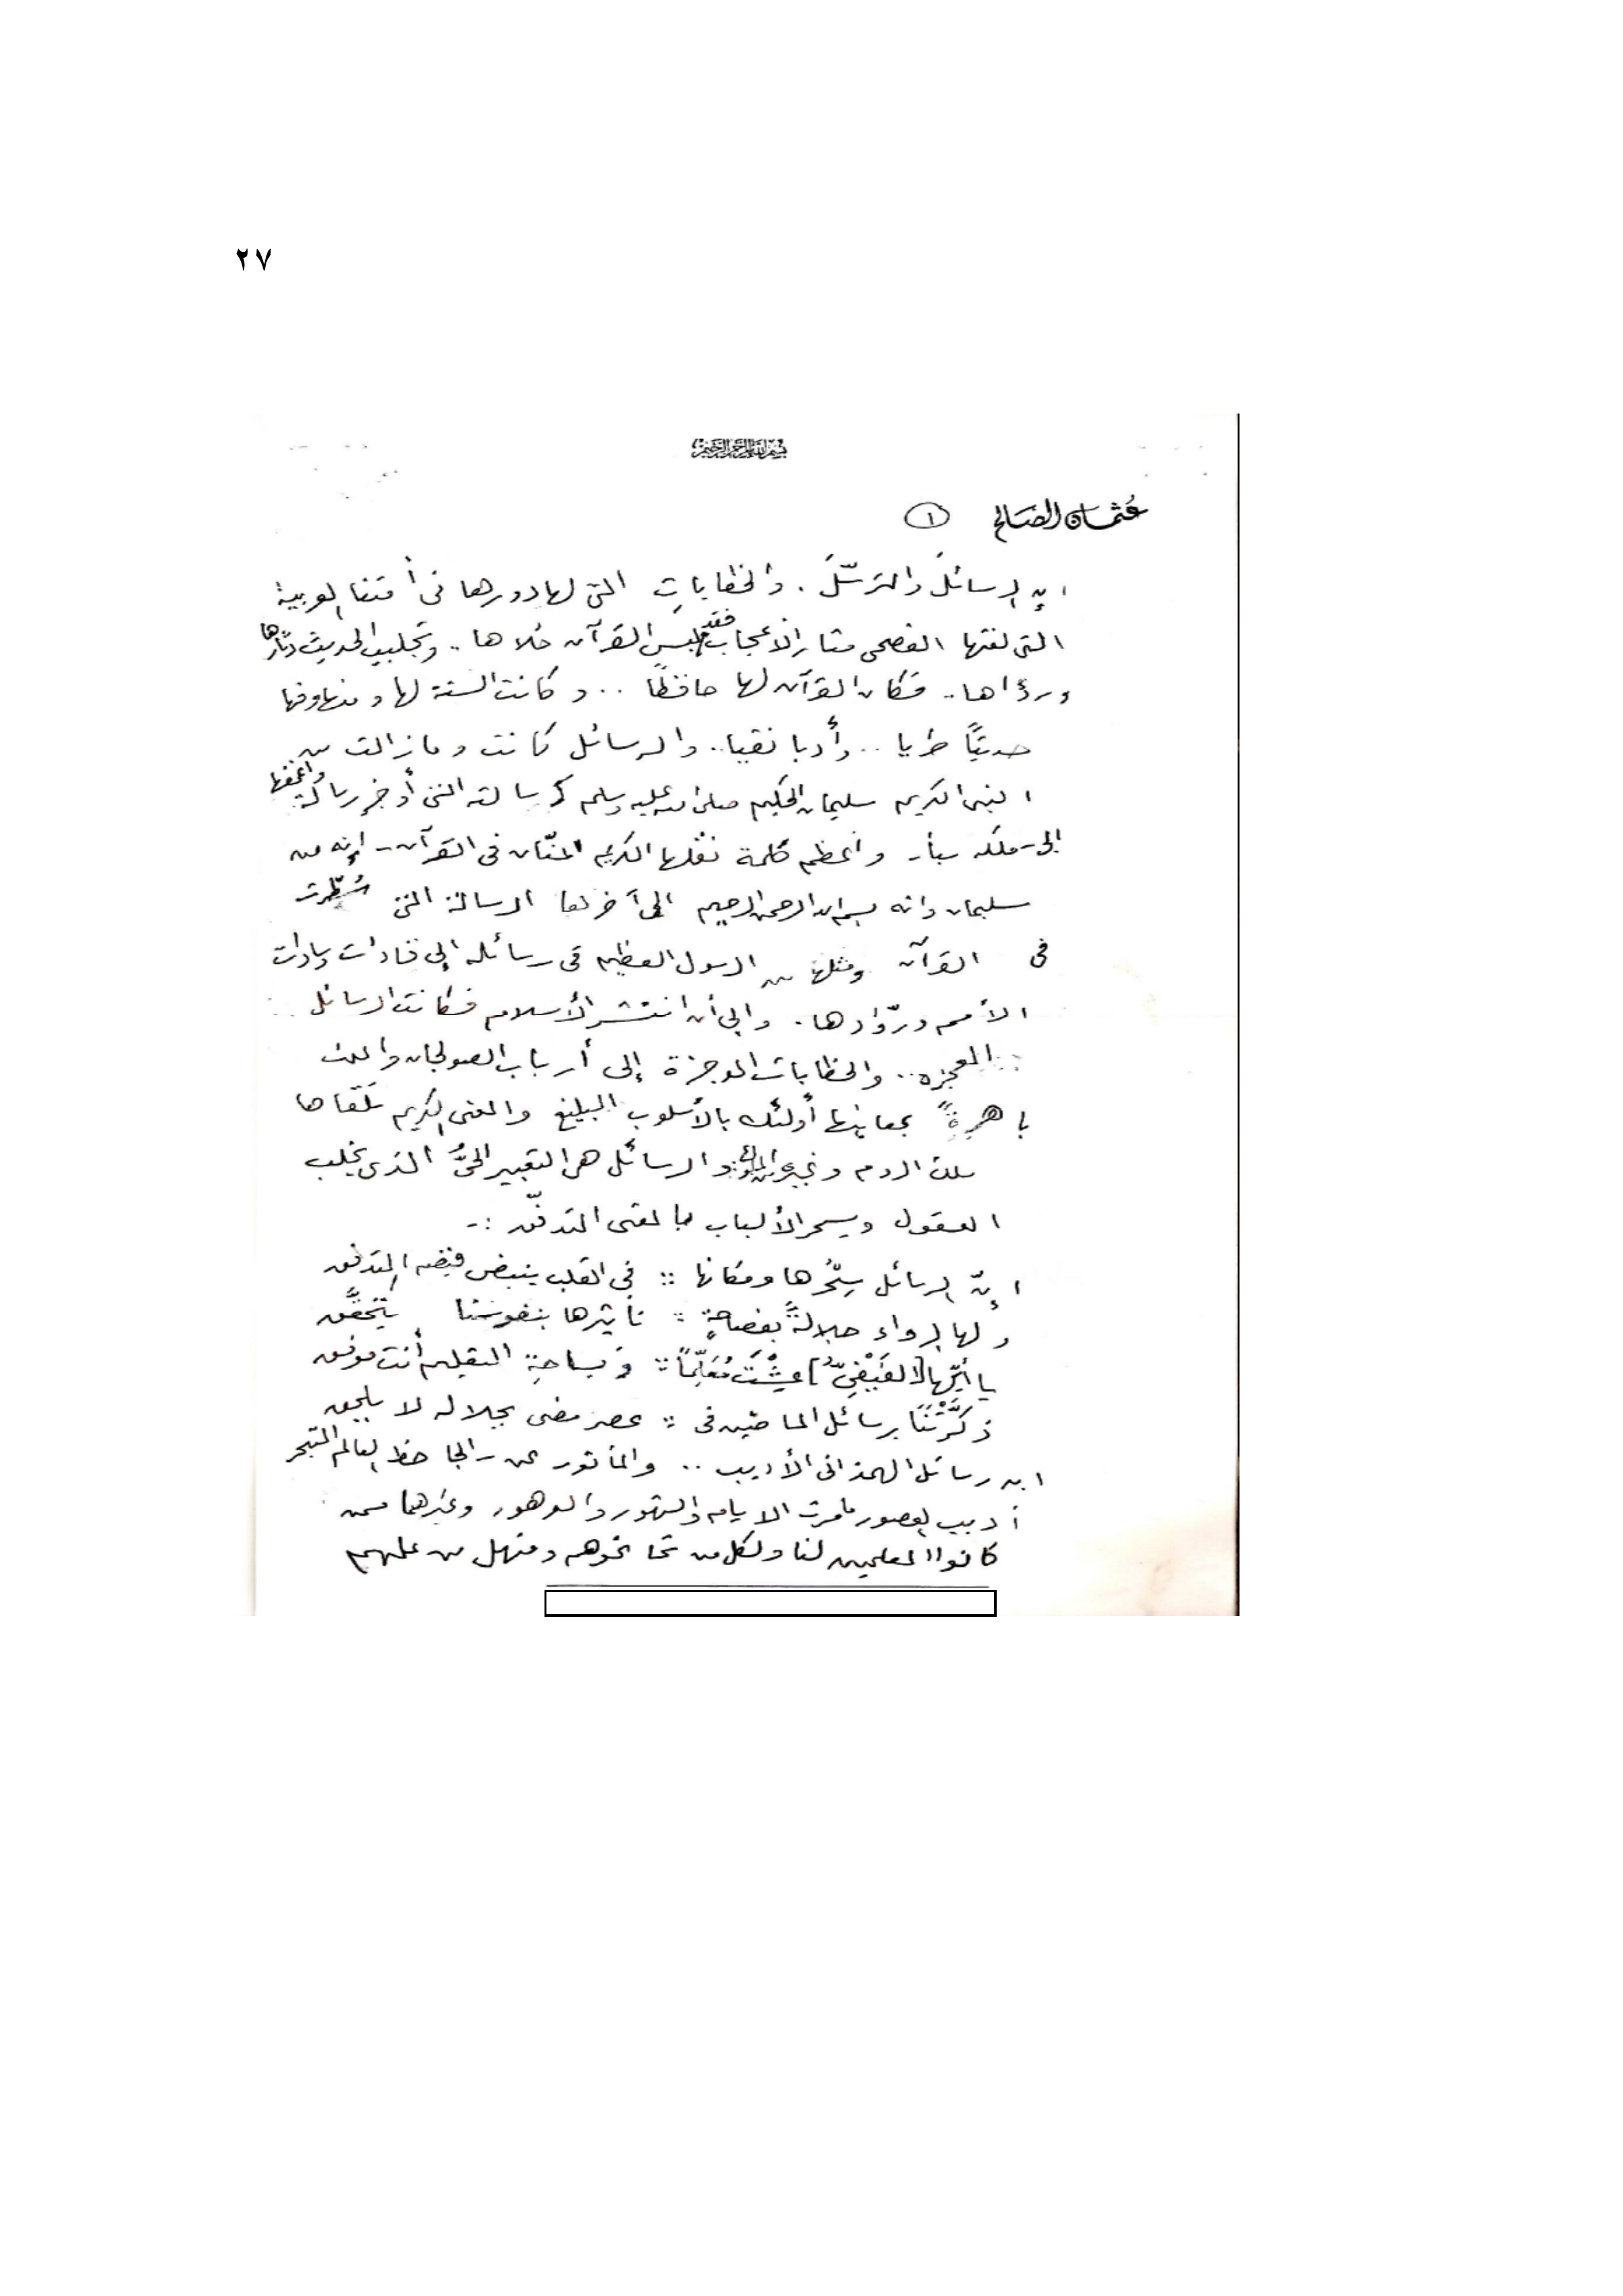 ٢٧
بسم الله الرحمن الرحيم
عثمان الصالح ١
إن الرسائلَ والترسّلَ . والخطاباتِ التى لها دورها فى أمتنا العربية
التى لغتها الفصحى مثار الاعجاب فقد لبس القرآن حُلاها .. وتجلبب الحديث دثارها
ورؤاها .. فكان القرآن لها حافظاً .. وكانت السنة لها ومنها وفيها
حديثًا طريا .. وأدبا نقيا .. والرسائل كانت وما زالت من
النبى الكريم سليمان الحكيم صلى الله عليه وسلم كرسالته التى أوجز رسالة وأعمقها
إلى ملكه سبأ - وأعظم كلمة نقلها الكريم المنّان فى القرآن - إنه من
سليمان وانه بسم الله الرحمن الرحيم الى آخر لها الرسالة التى سُطِّرت
فى القرآن ومثلها من الرسول العظيم فى رسائله إلى قادات وسادات
الأمم وروّادها . والى أن انتشر الأسلام فكانت الرسائل ..
المعجزه .. والخطابات الموجزة إلى أرباب الصولجان والملك
باهرةً بمعانيها أولئك بالأسلوب البليغ والمعنى الكريم تلقاها
ملك الروم وغيره من الملوك والرسائل هى التعبير الحىُّ الذى يخلب
العقول ويسحر الألباب بالمعنى المتدفّق :-
إنّ الرسائل سِحْرُها ومكانها :: فى القلب ينبض فيضه المتدفق
ولها الرواء جلالةً بفصاحةٍ :: تأثيرها بنفوسنا يتحقَّق
يا أيّها [الفَيْفيّ] عِشْتَ مُعَلِّماً :: وَبساحةِ التعليم أنت موفق
ذكَّرْتَنَا برسائل الماضين فى :: عصر مضى بجلاله لا يلحق
اين رسائل الهمذانى الأديب .. والمأثور عن الجاحظ العالم المتبحر
أديب العصور ما مرت الايام والشهور والدهور وغيرهما ممن
كانوا المعلمين لنا ولكل من نحا نحوهم ومنهل من علمهم